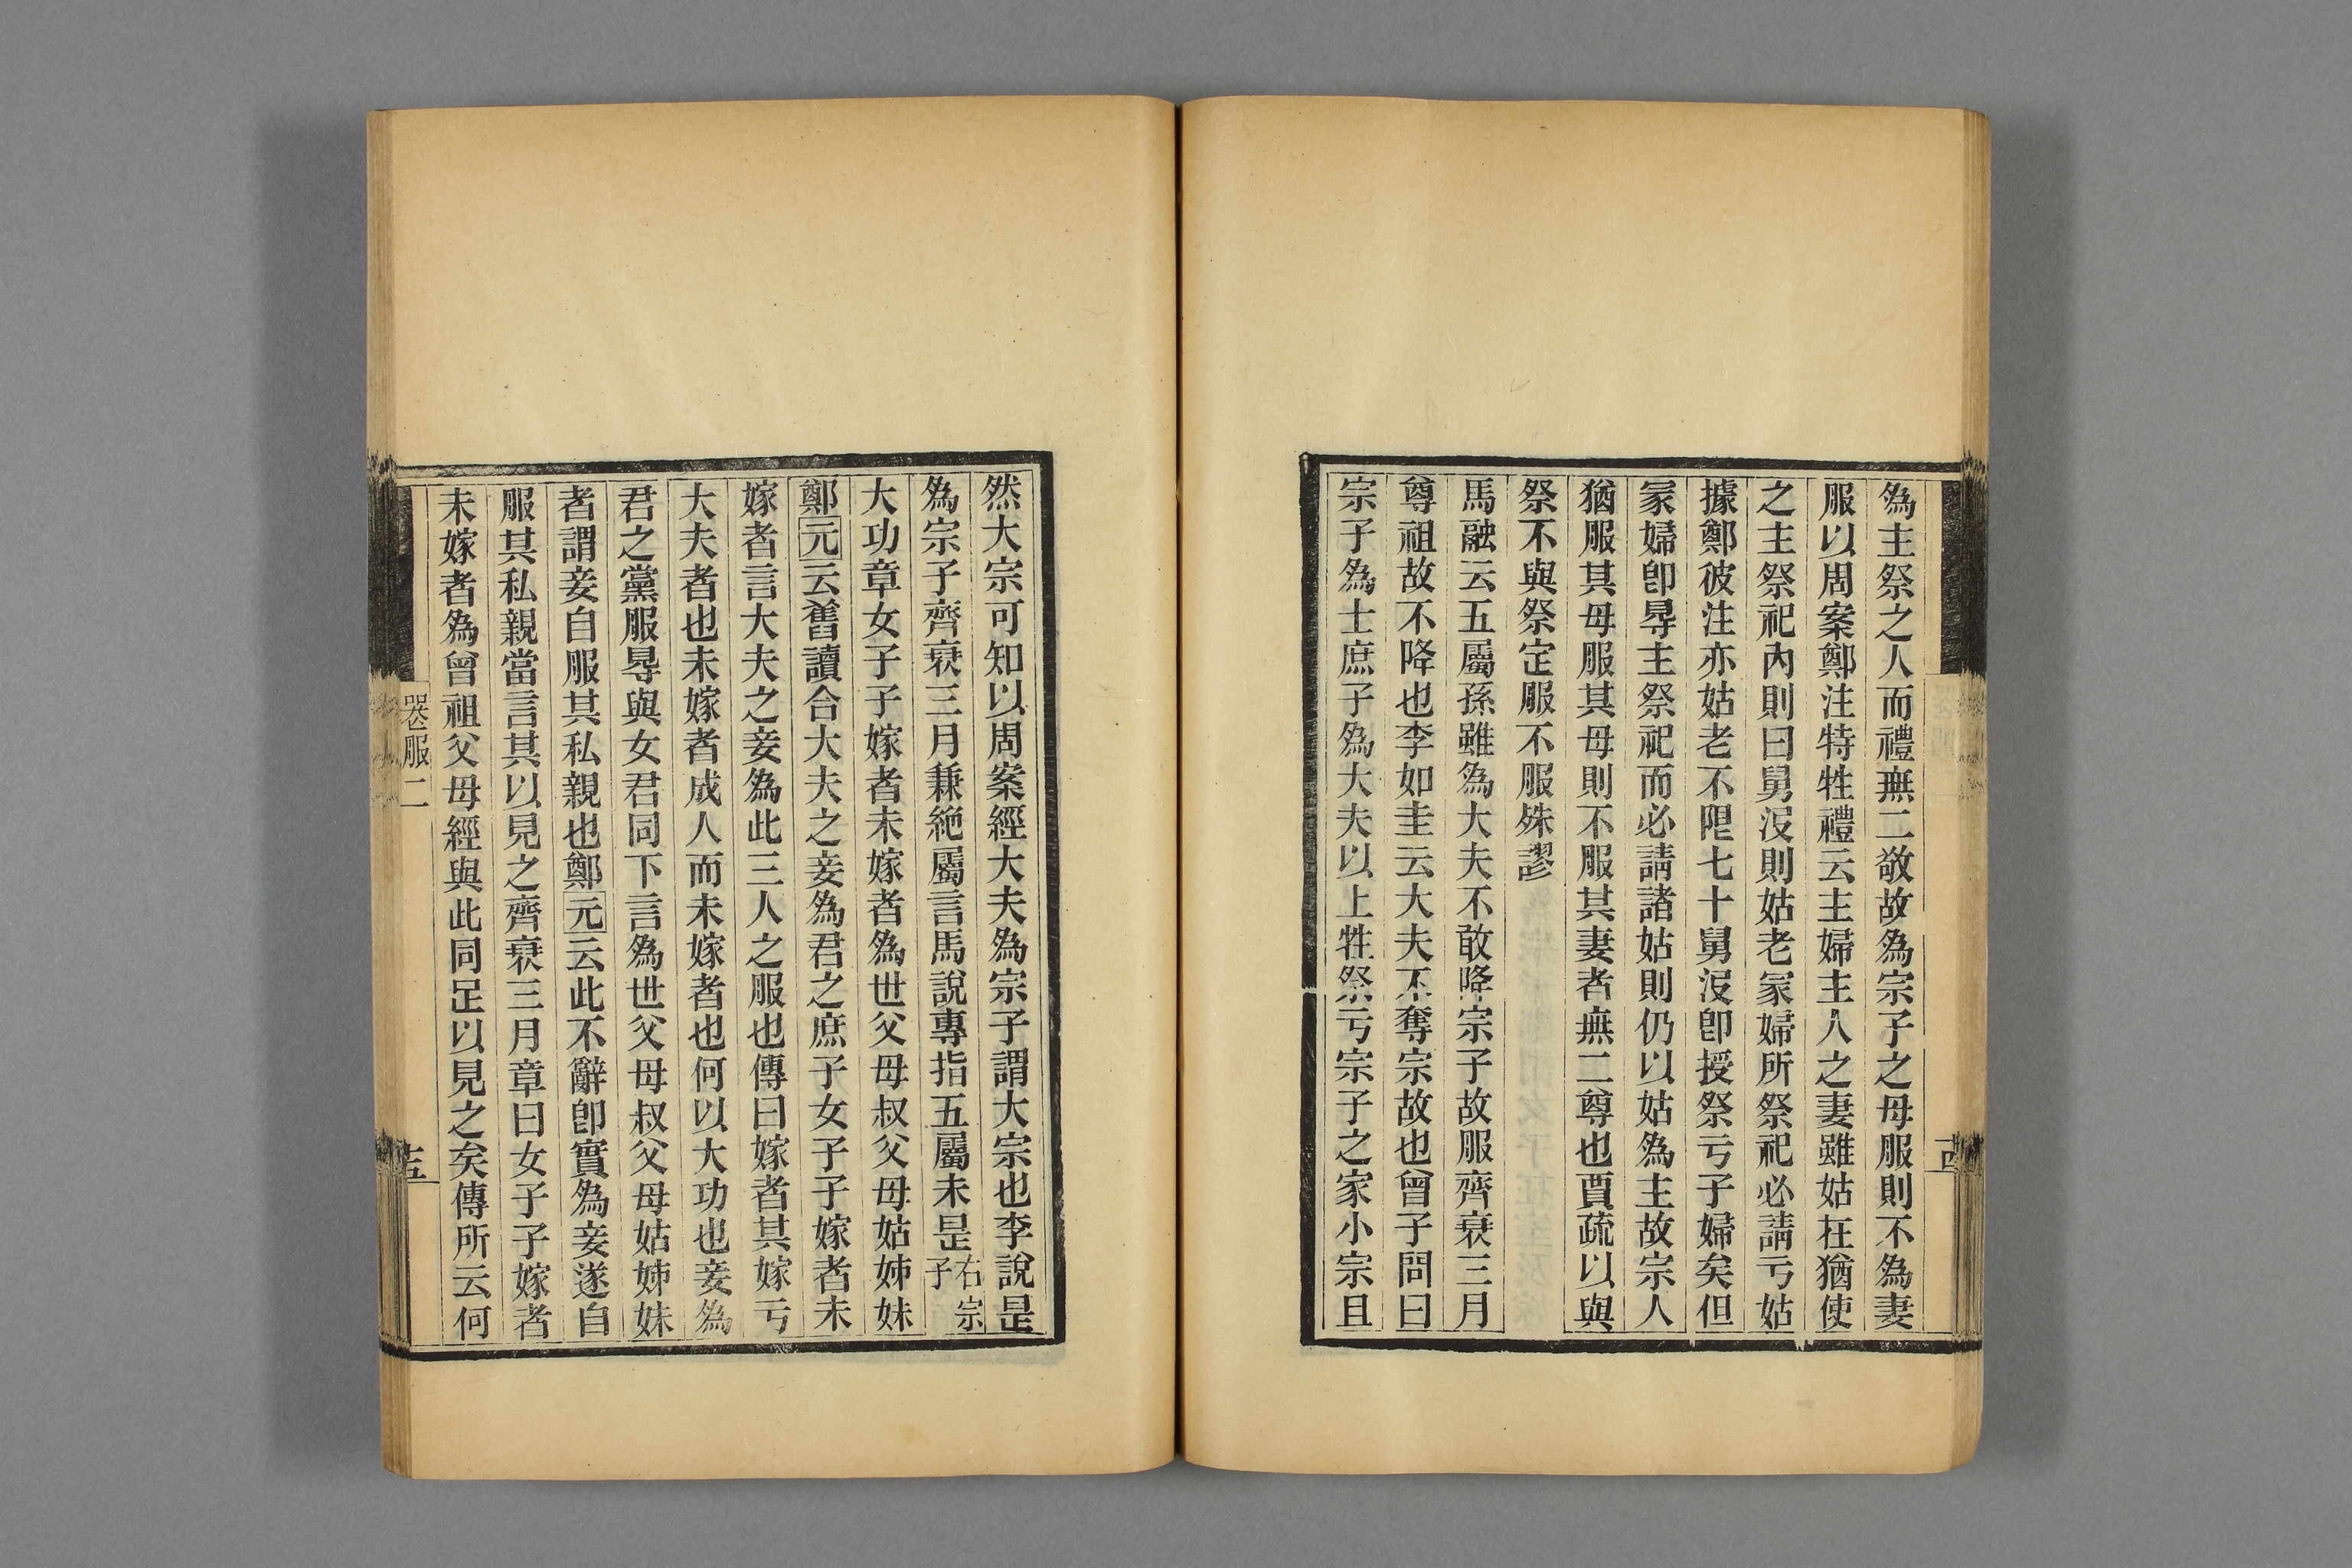 為主祭之人而禮無二敬故為宗子之母服則不為妻
服以周案鄭注特牲禮云主婦主人之妻雖姑在猶使
之主祭祀內則曰舅沒則姑老冢婦所祭祀必請亏姑
據鄭彼注亦姑老不限七十舅沒卽授祭亏子婦矣但
冢婦卽是主祭祀而必請諸姑則仍以姑為主故宗人
猶服其母服其母則不服其妻者無二尊也賈疏以與
祭不與祭定服不服殊謬
馬融云五屬孫雖為大夫不敢降宗子故服齊衰三月
尊祖故不降也李如圭云大夫不奪宗故也曾子問曰
宗子為士庶子為大夫以上牲祭亏宗子之家小宗且
十四
然大宗可知以周案經大夫為宗子謂大宗也李說是
為宗子齊衰三月兼絕屬言馬說專指五屬未是右宗子
大功章女子子嫁者未嫁者為世父母叔父母姑姊妹
鄭元云舊讀合大夫之妾為君之庶子女子子嫁者未
嫁者言大夫之妾為此三人之服也傳曰嫁者其嫁亏
大夫者也未嫁者成人而未嫁者也何以大功也妾為
君之黨服得與女君同下言為世父母叔父母姑姊妹
者謂妾自服其私親也鄭元云此不辭卽實為妾遂自
服其私親當言其以見之齊衰三月章曰女子子嫁者
未嫁者為曾祖父母經與此同足以見之矣傳所云何
喪服二
十五